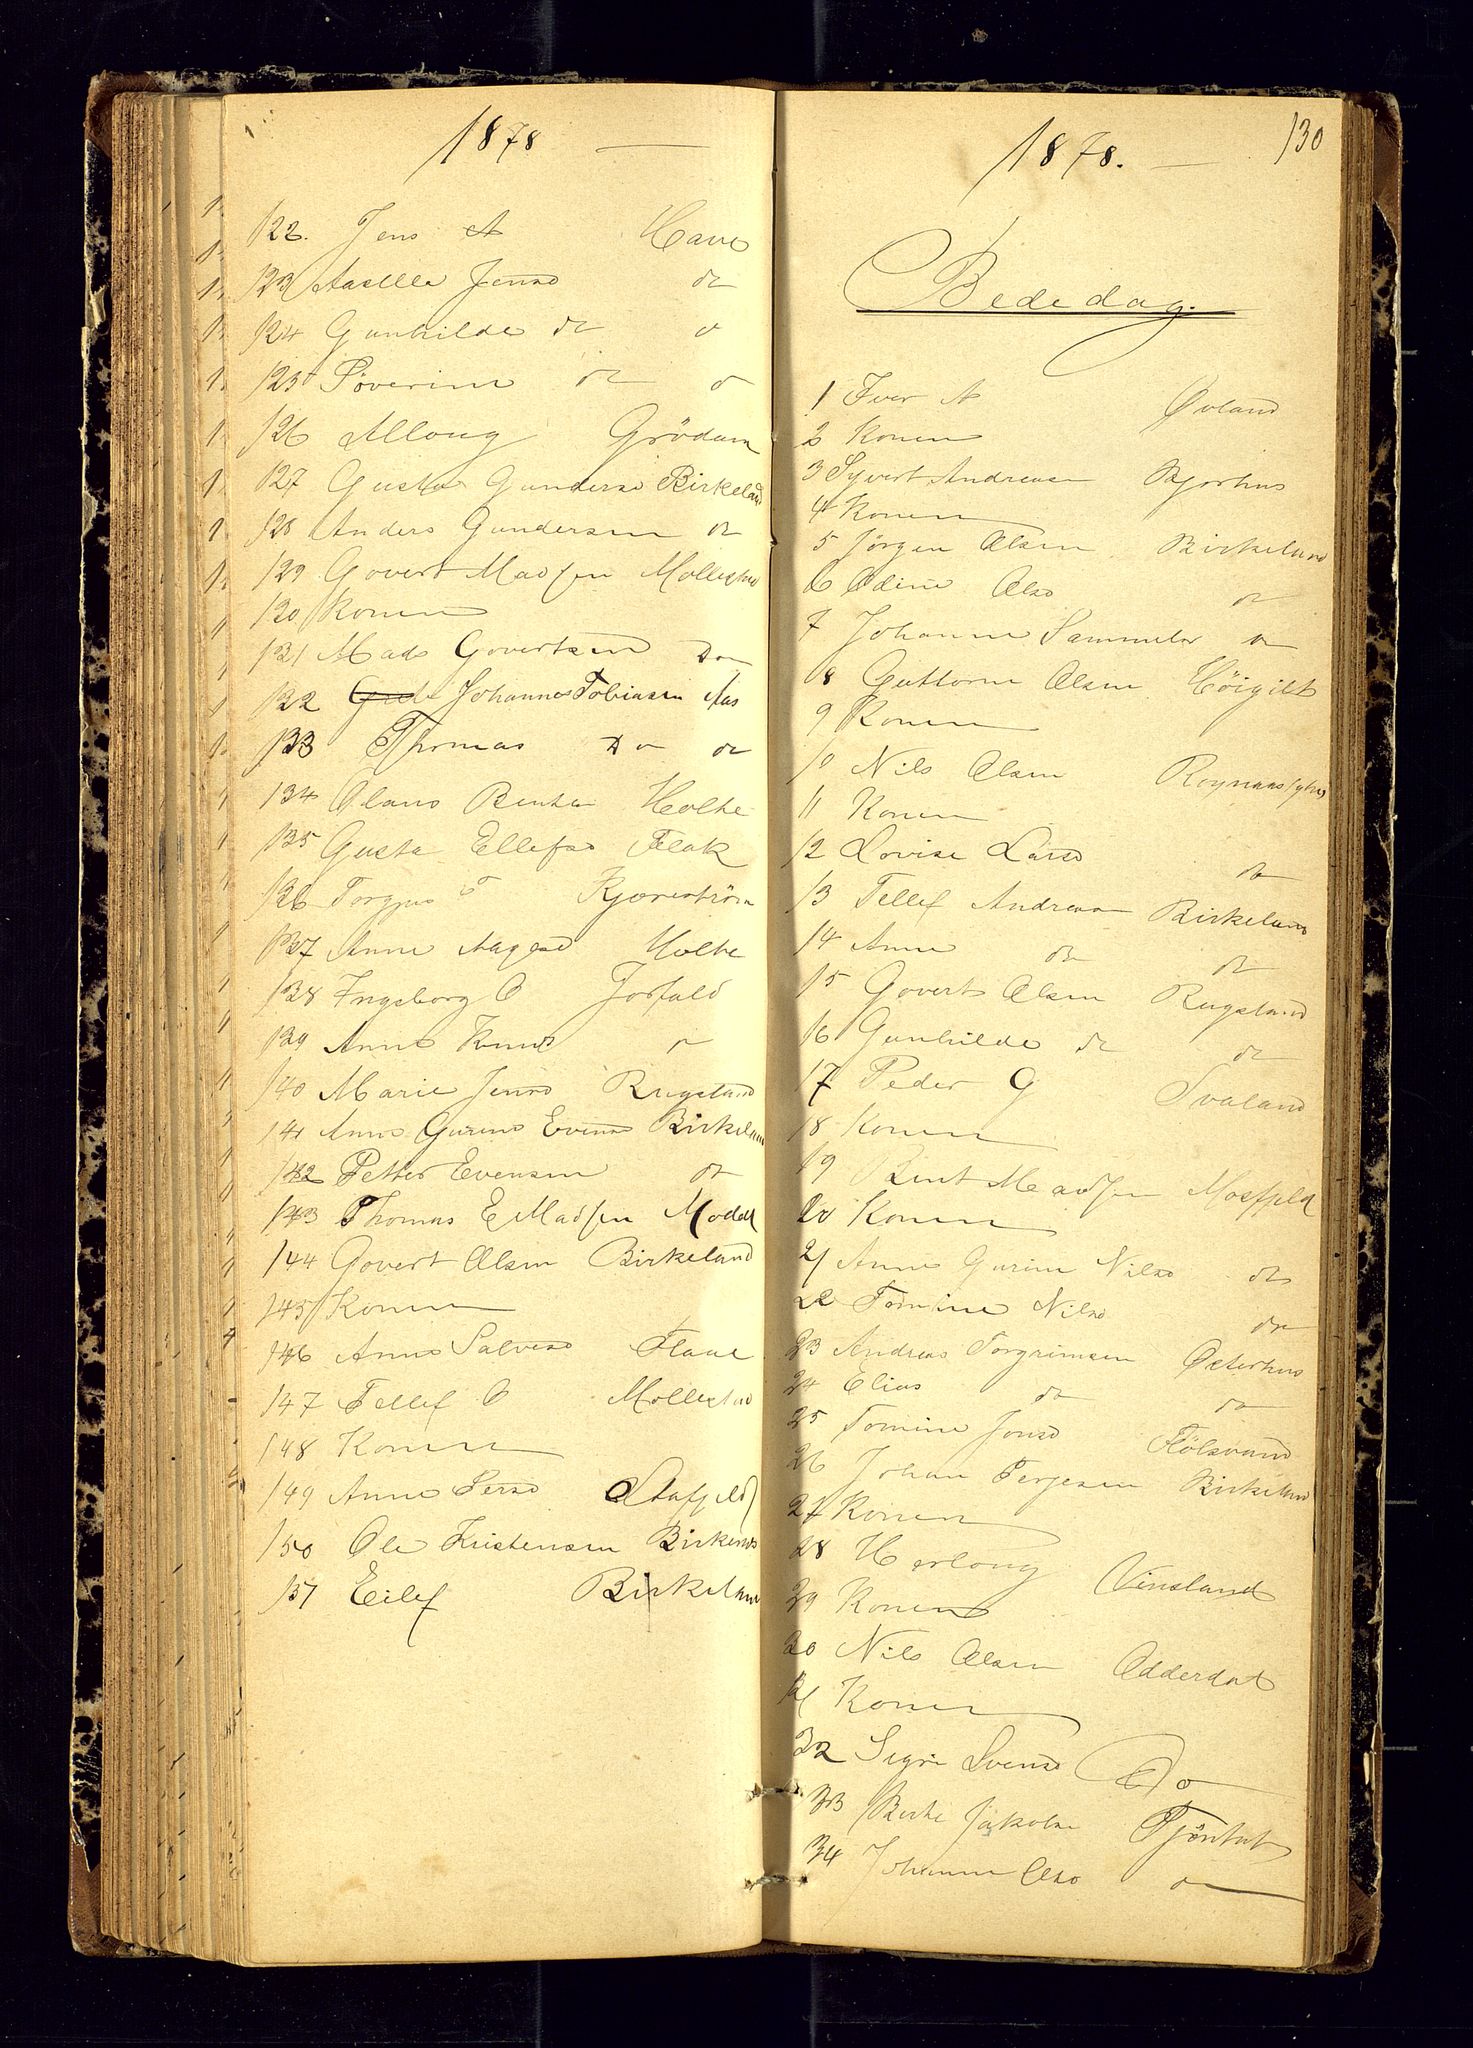 1878
122. Jens A Have
123 Aaselle Jensd do
124 Gunhilde do o
125 Söverine do o
126 Alloug Grödum
127 Gusta Gundersd Birkeland
128 Anders Gundersen do
129 Govert Madsen Mollestad
130 Konen
131 Mads Govertsen Do
132 Johannes Tobiasen Aas
133 Thomas Do do
134 Olaus Bentsen Holte
135 Gusta Ellefsd Flak
136 Torgjus T
137 Anne Aagesd Holte
138 Ingsborg O Jorfald
139 Anne Knuds do
140 Marie Jensd Rugsland
141 Anne Gurine Evensd Birkeland
142 Petter Evensen do
143 Thomas E Madsen
144 Govert Olsen Birkeland
145 Konen
146 Anne Salvesd Flaae
147 Tellef O Mollestad
148 Konen
149 Anne Persd
150 Ole Kristensen Birkenes
151 Eilef Birkeland
130
1878.
Bededag.
1 Iver A Øvland
2 Konen
3 Syvert Andreasen Bjorhus
4 Konen
5 Jörgen Olsen Birkeland
6 Odine Olsd do
7 Johanne Sammelsd do
8 Guttorm Olsen Höigilt
9 Konen
10 Nils Olsen
11 Konen
12 Lovise Larsd do
13 Tellef Andreasen Birkeland
14 Anne do do
15 Govert Olsen Rugsland
16 Gunhilde do do
17 Peder G Svaland
18 Konen
19 Bent Madsen Mosfjeld
20 Konen
21 Anne Gurine Nilsd do
22 Tomine Nilsd do
23 Andreas Torgrimsen Østerhus
24 Elias do do
25 Tomine Jensd Flölsvand
26 Johan Terjesen Birkeland
27 Konen
28 Herloug Vinsland
29 Konen
30 Nils Olsen Odderdal
31 Konen
32 Sigri Svensd Do
33 Berte Jakobsd
34 Johanne Olsd do